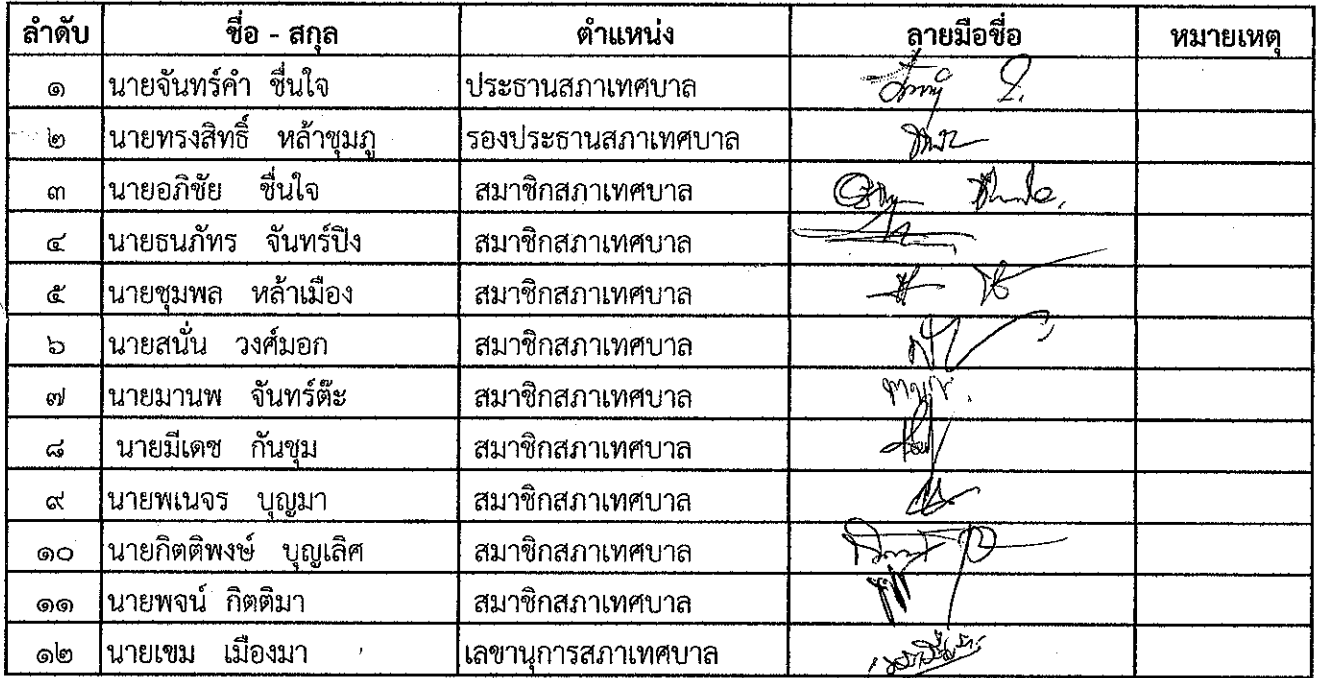 ลำดับ ชื่อ - สกุล ตำแหน่ง ลายมือชื่อ หมายเหตุ
๑ นายจันทร์คำ ชื่นใจ ประธานสภาเทศบาล
๒ นายทรงสิทธิ์ หล้าชุมภู รองประธานสภาเทศบาล
๓ นายอภิชัย ชื่นใจ สมาชิกสภาเทศบาล
๔ นายธนภัทร จันทร์ปิง สมาชิกสภาเทศบาล
๕ นายชุมพล หล้าเมือง สมาชิกสภาเทศบาล
๖ นายสนั่น วงศ์มอก สมาชิกสภาเทศบาล
๗ นายมานพ จันทร์ต๊ะ สมาชิกสภาเทศบาล
๘ นายมีเดช กันชุม สมาชิกสภาเทศบาล
๙ นายพเนจร บุญมา สมาชิกสภาเทศบาล
๑๐ นายกิตติพงษ์ บุญเลิศ สมาชิกสภาเทศบาล
๑๑ นายพจน์ กิตติมา สมาชิกสภาเทศบาล
๑๒ นายเขม เมืองมา เลขานุการสภาเทศบาล